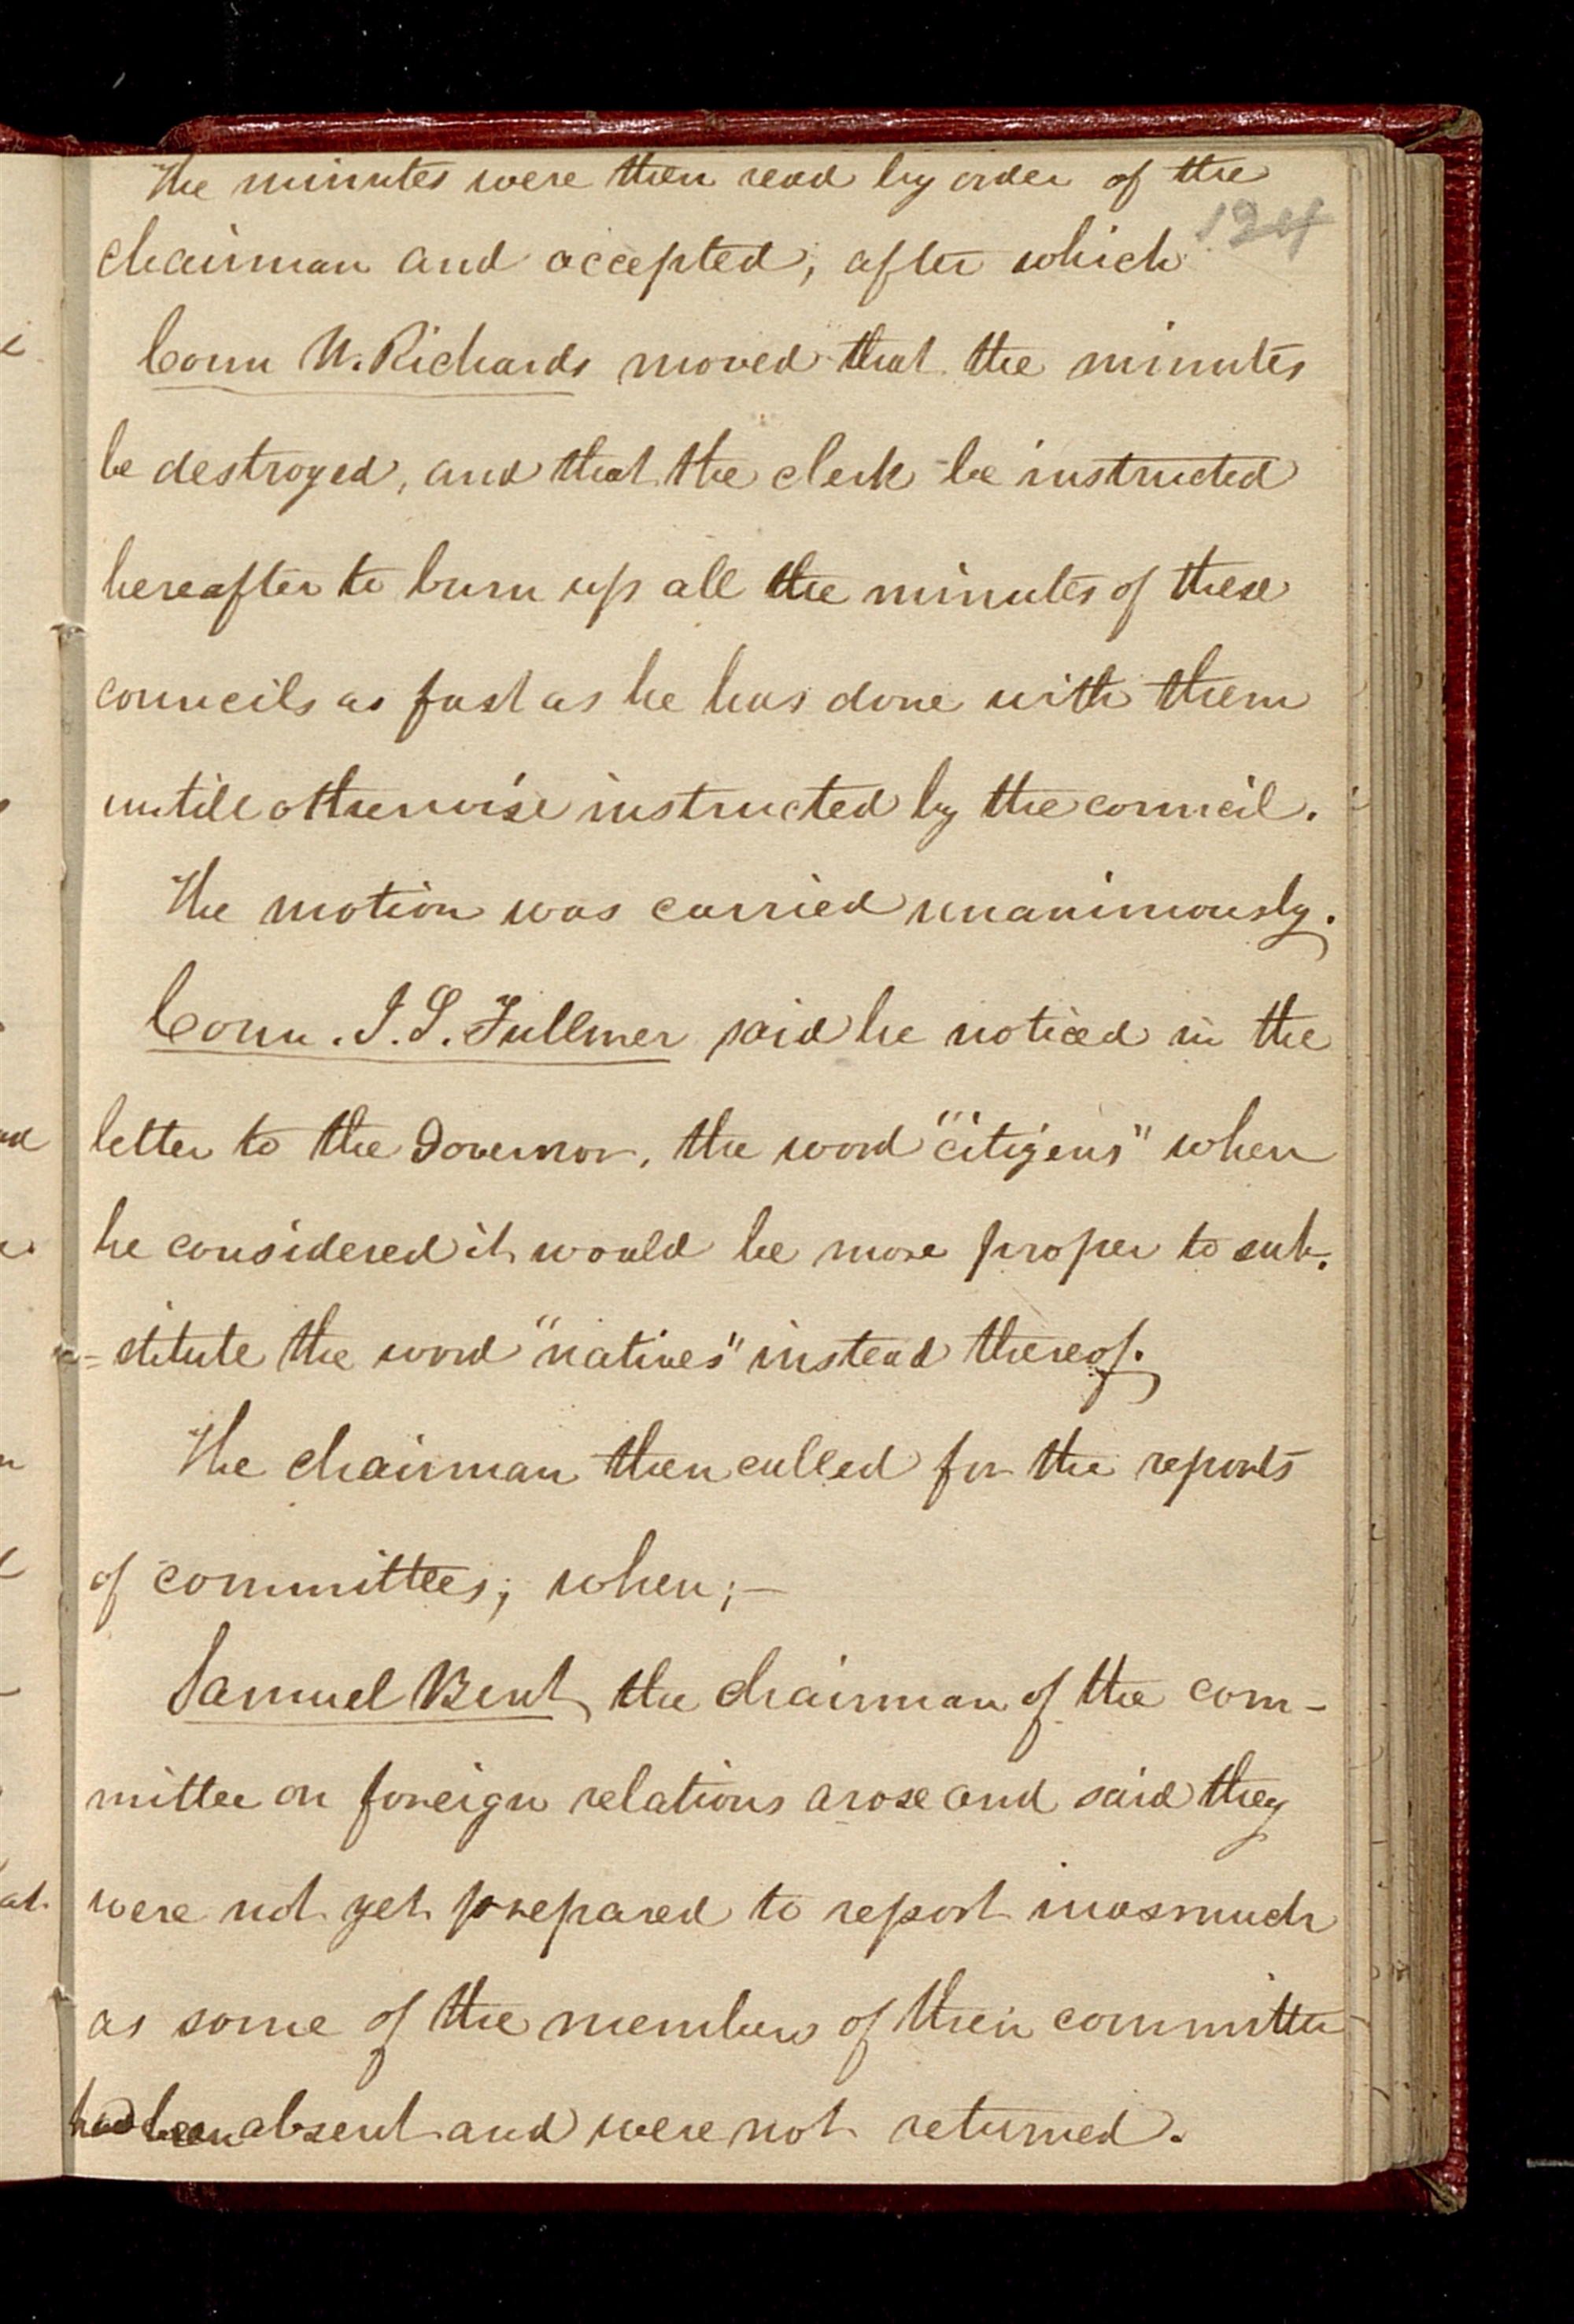 The minutes were then read by order of the
124
chairman and accepted; after which
Coun W. Richards moved that the minutes
be destroyed, and that the clerk be instructed
hereafter to burn up all the minutes of these
councils as fast as he has done with them
untill otherwise instructed by the council.
The motion was carried unanimously.
Coun. J. S. Fullmer said he noticed in the
letter to the Governor, the word "citizens" when
he considered it would be more proper to sub-
=stitute the word "natives" instead thereof.
The chairman then called for the reports
of committees; when;—
Samuel Bent, the chairman of the com-
mittee on foreign relations arose and said they
were not yet prepared to report inasmuch
as some of the members of their committee
had been absent and were not returned.